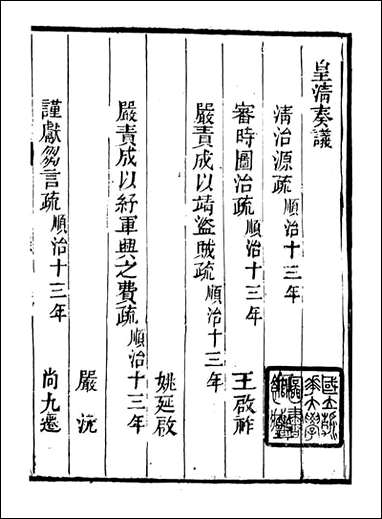 皇清奏議
清治源疏 順治十三年
審時圖治疏 順治十三年
王啟祚
嚴責成以靖盜賊疏 順治十三年
姚延啟
嚴責成以紓軍興之費疏 順治十三年
嚴沆
謹獻芻言疏 順治十三年
尚九遷